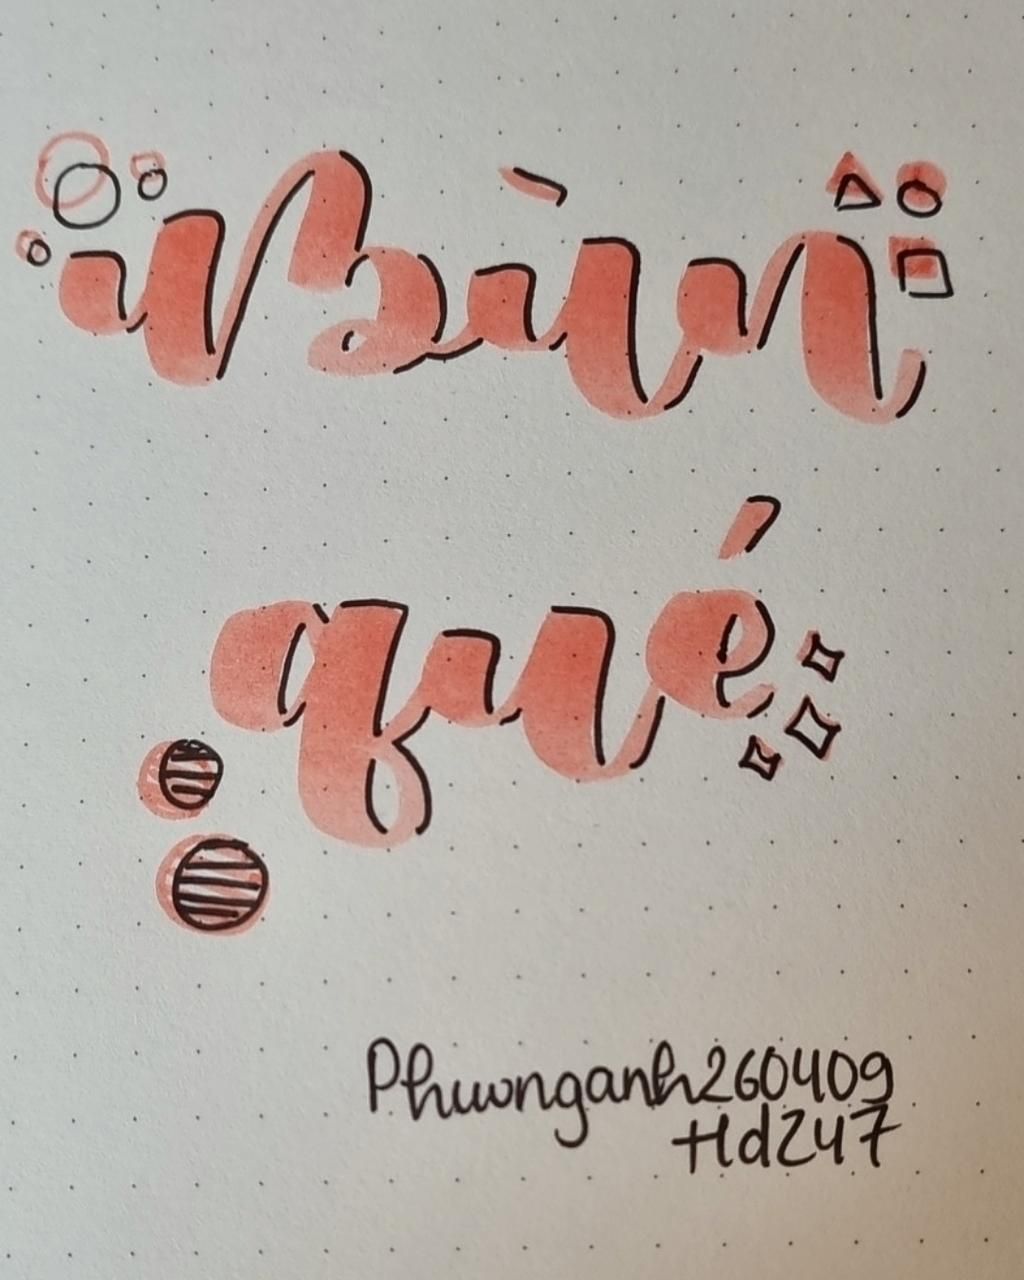 Bùn
qué
Phuonganh260409
Hd247